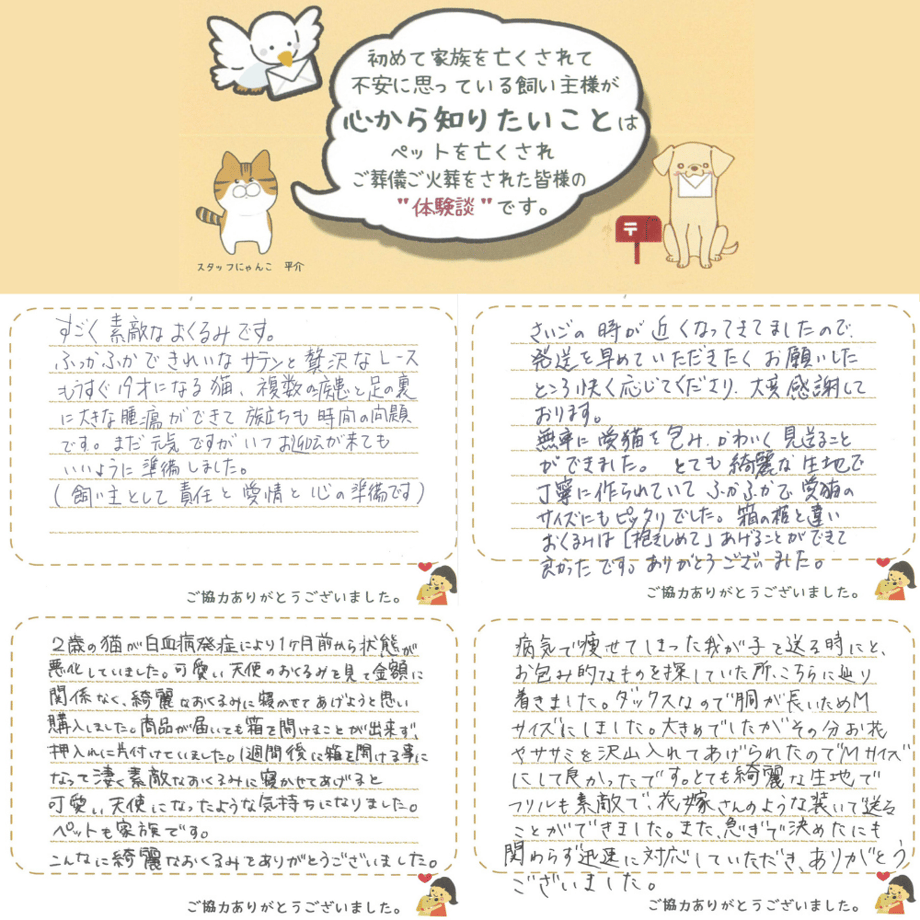 初めて家族を亡くされて
不安に思っている飼い主様が
心から知りたいことは
ペットを亡くされ
ご葬儀ご火葬をされた皆様の
"体験談"です。
スタッフにゃんこ 平介
すごく素敵なおくるみです。
ふっかふかできれいなサテンと贅沢なレース
もうすぐ19才になる猫、複数の疾患と足の裏
に大きな腫瘍ができて旅立ちも時間の問題
です。まだ元気ですがいつお迎えが来ても
いいように準備しました。
(飼い主として責任と愛情と心の準備です)
ご協力ありがとうございました。
さいごの時が近くなってきてましたので、
発送を早めていただきたくお願いした
ところ快く応じてくださり、大変感謝して
おります。
無事に愛猫を包み、かわいく見送ること
ができました。とても綺麗な生地で
丁寧に作られていてふかふかで愛猫の
サイズにもピッタリでした。箱の柩と違い
おくるみは「抱きしめて」あげることができて
良かったです。ありがとうございました。
ご協力ありがとうございました。
2歳の猫が白血病発症により1ヶ月前から状態が
悪化していました。可愛い天使のおくるみを見て金額に
関係なく、綺麗なおくるみに寝かせてあげようと思い
購入しました。商品が届いても箱を開けることが出来ず、
押入れに片付けていました。1週間後に箱を開ける事に
なって凄く素敵なおくるみに寝かせてあげると
可愛い天使になったような気持ちになりました。
ペットも家族です。
こんなに綺麗なおくるみでありがとうございました。
ご協力ありがとうございました。
病気で痩せてしまった我が子を送る時にと、
お包み的なものを探していた所、こちらに辿り
着きました。ダックスなので胴が長いためM
サイズにしました。大きめでしたがその分お花
やササミを沢山入れてあげられたのでMサイズ
にして良かったです。とても綺麗な生地で
フリルも素敵で、花嫁さんのような装いで送る
ことができました。また、急ぎで決めたにも
関わらず迅速に対応していただき、ありがとう
ございました。
ご協力ありがとうございました。